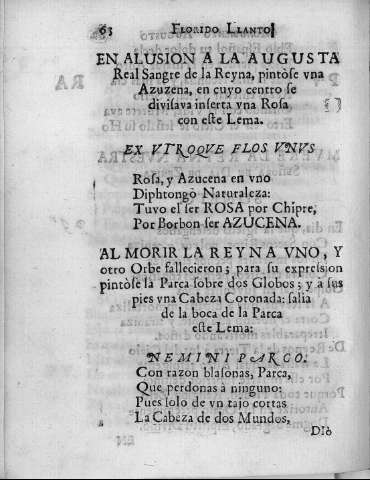 63 FLORIDO LLANTO
EN ALUSION A LA AUGUSTA
Real Sangre de la Reyna, pintòse vna
Azuzena, en cuyo centro se
divisava inserta vna Rosa
con este Lema.
EX VTROQVE FLOS VNVS
Rosa, y Azucena en vno
Diphtongò Naturaleza:
Tuvo el ser ROSA por Chipre,
Por Borbon ser AZUCENA.
AL MORIR LA REYNA VNO, Y
otro Orbe fallecieron; para su expression
pintòse la Parca sobre dos Globos; y à sus
pies vna Cabeza Coronada: salia
de la boca de la Parca
este Lema:
NEMINI PARCO.
Con razon blasonas, Parca,
Que perdonas à ninguno:
Pues solo de vn tajo cortas
La Cabeza de dos Mundos,
Diò